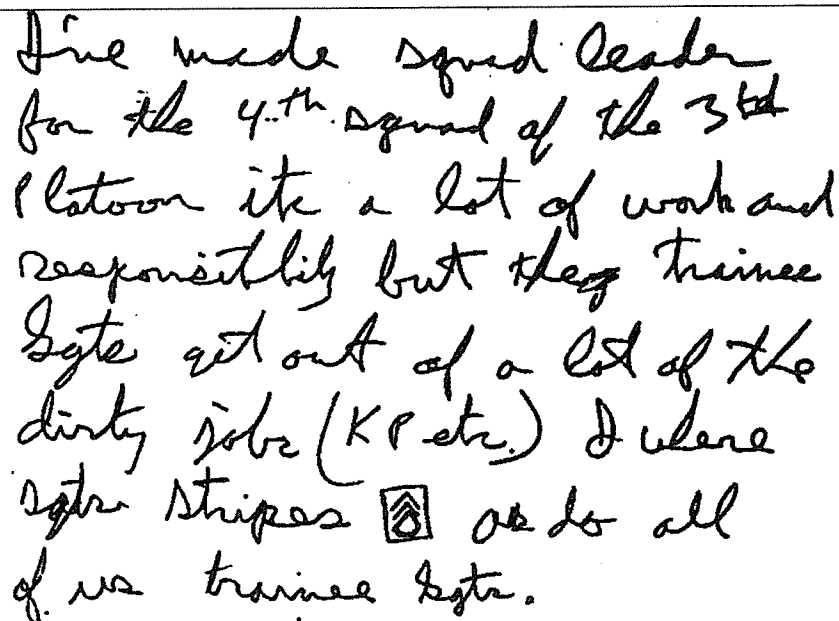 I've made squad leader
for the 4th squad of the 3td
Platoon its a lot of work and
responsibility but the trainee
Sgts get out of a lot of the
dirty jobs (KP etc.) I where
sgts stripes as do all
of us trainee Sgts.